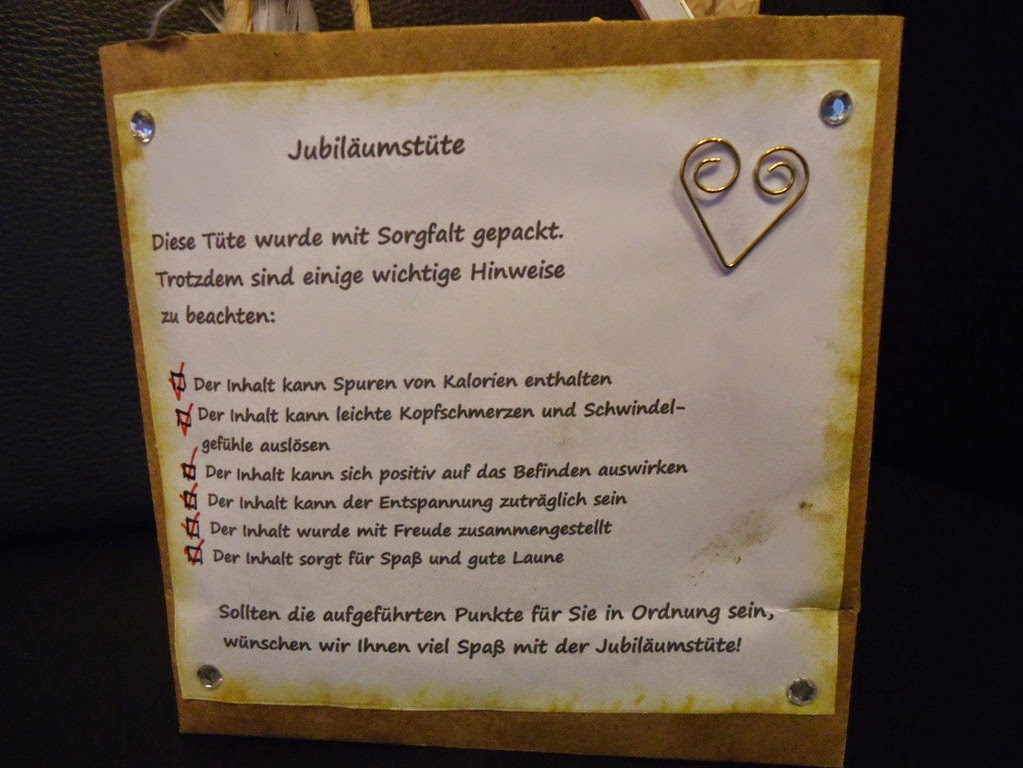 Jubiläumstüte
Diese Tüte wurde mit Sorgfalt gepackt.
Trotzdem sind einige wichtige Hinweise
zu beachten:
Der Inhalt kann Spuren von Kalorien enthalten
Der Inhalt kann leichte Kopfschmerzen und Schwindel-
gefühle auslösen
Der Inhalt kann sich positiv auf das Befinden auswirken
Der Inhalt kann der Entspannung zuträglich sein
Der Inhalt wurde mit Freude zusammengestellt
Der Inhalt sorgt für Spaß und gute Laune
Sollten die aufgeführten Punkte für Sie in Ordnung sein,
wünschen wir Ihnen viel Spaß mit der Jubiläumstüte!